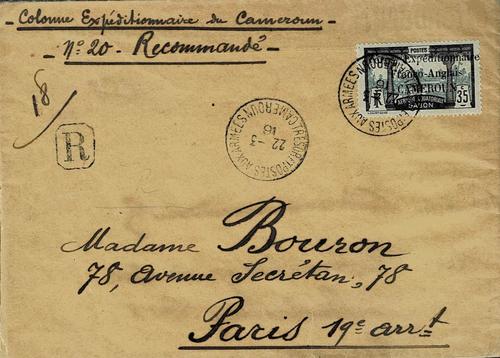 Colonne Expéditionnaire du Cameroun
Nº 20 - Recommandé
18
R
TRESOR ET POSTES AUX ARMEES
CAMEROUN
22 - 3
16
POSTES
Expéditionnaire
Franco-Anglais
CAMEROUN
AFRIQUE EQUATORIALE
GABON
35
POSTES AUX ARMEES
Madame Bouron
78, Avenue Secrétan, 78
Paris 19e arrt